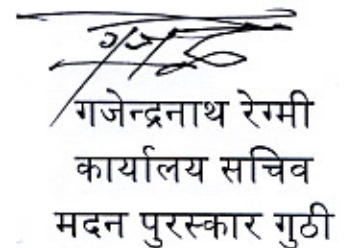 गजेन्द्रनाथ रेग्मी
कार्यालय सचिव
मदन पुरस्कार गुठी